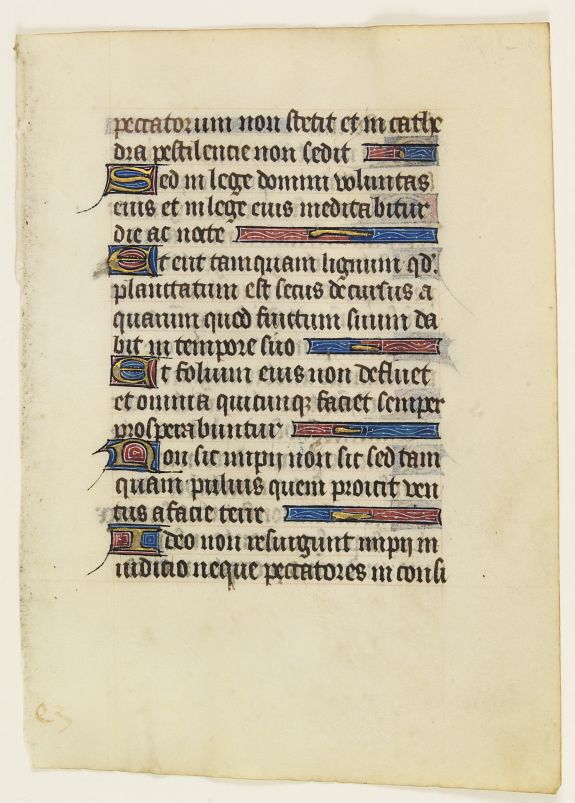 peccatorum non stetit et in cathe
dra pestilencie non sedit
Sed in lege domini voluntas
eius et in lege eius meditabitur
die ac nocte
Et erit tamquam lignum qd'
planctatum est secus decursus a
quarum quod fructum suum da
bit in tempore suo
Et folium eius non defluet
et omnia quecunq faciet semper
prosperabuntur
Non sic impij non sic sed tam
quam puluis quem proicit ven
tus a facie terre
Ideo non resurgunt impij in
iudicio neque peccatores in consi
e3